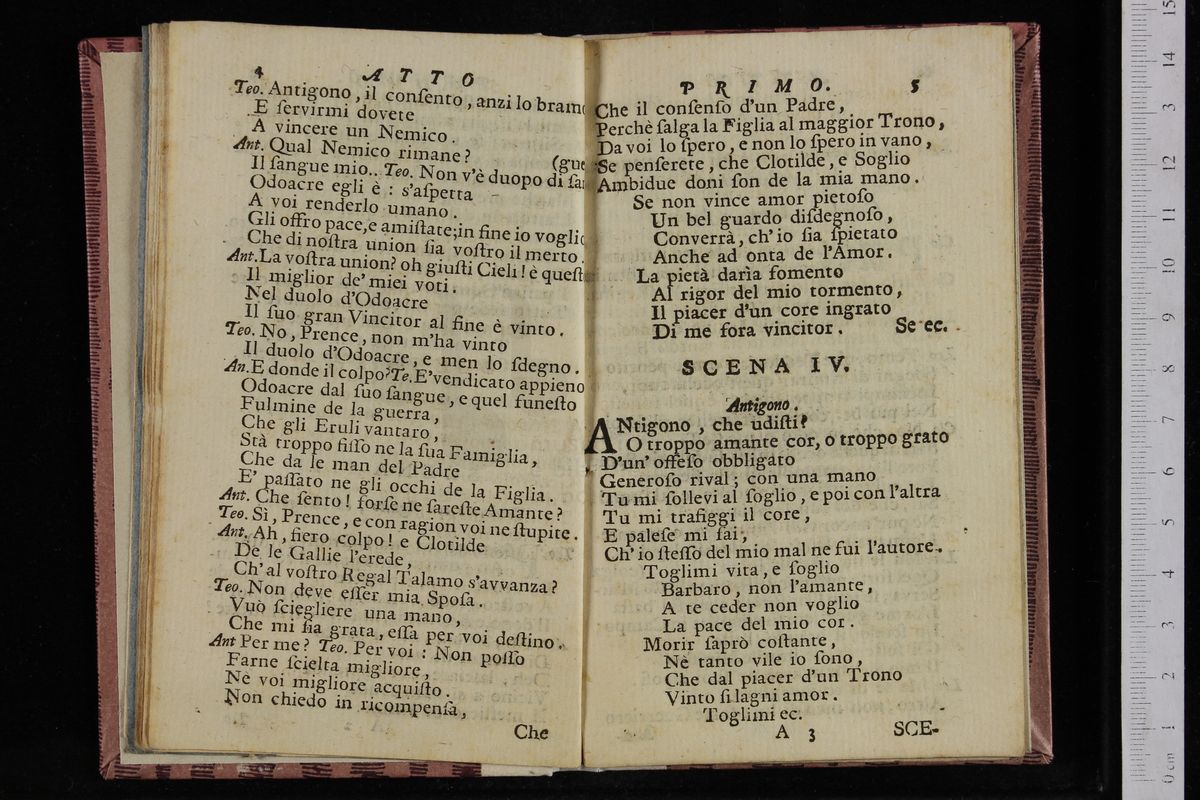 4 ATTO
Teo. Antigono, il conſento, anzi lo bram
E ſervirmi dovete
A vincere un Nemico.
Ant. Qual Nemico rimane? (gue
Il ſangue mio.. Teo. Non v'è duopo di ſa
Odoacre egli è : s'aſpetta
A voi renderlo umano.
Gli offro pace, e amiſtate; in fine io voglio
Che di noſtra union ſia voſtro il merto.
Ant. La voſtra union? oh giuſti Cieli! è queſt
Il miglior de' miei voti.
Nel duolo d'Odoacre
Il ſuo gran Vincitor al fine è vinto.
Teo. No, Prence, non m'ha vinto
Il duolo d'Odoacre, e men lo ſdegno.
An. E donde il colpo? Te. E' vendicato appieno
Odoacre dal ſuo ſangue, e quel funeſto
Fulmine de la guerra,
Che gli Eruli vantaro,
Stà troppo fiſſo ne la ſua Famiglia,
Che da le man del Padre
E' paſſato ne gli occhi de la Figlia.
Ant. Che ſento! forſe ne ſareſte Amante?
Teo. Sì, Prence, e con ragion voi ne ſtupite.
Ant. Ah, fiero colpo! e Clotilde
De le Gallie l'erede,
Ch'al voſtro Regal Talamo s'avvanza?
Teo. Non deve eſſer mia Spoſa.
Vuò ſciegliere una mano,
Che mi ſia grata, eſſa per voi deſtino.
Ant Per me? Teo. Per voi : Non poſſo
Farne ſcielta migliore,
Nè voi migliore acquiſto.
Non chiedo in ricompenſa,
Che
PRIMO. 5
Che il conſenſo d'un Padre,
Perchè ſalga la Figlia al maggior Trono,
Da voi lo ſpero, e non lo ſpero in vano,
Se penſerete, che Clotilde, e Soglio
Ambidue doni ſon de la mia mano.
Se non vince amor pietoſo
Un bel guardo diſdegnoſo,
Converrà, ch'io ſia ſpietato
Anche ad onta de l'Amor.
La pietà daria fomento
Al rigor del mio tormento,
Il piacer d'un core ingrato
Di me fora vincitor. Se ec.
SCENA IV.
Antigono.
ANtigono, che udiſti?
O troppo amante cor, o troppo grato
D'un' offeſo obbligato
Generoſo rival; con una mano
Tu mi ſollevi al ſoglio, e poi con l'altra
Tu mi trafiggi il core,
E paleſe mi fai,
Ch'io ſteſſo del mio mal ne fui l'autore.
Toglimi vita, e ſoglio
Barbaro, non l'amante,
A te ceder non voglio
La pace del mio cor.
Morir ſaprò coſtante,
Nè tanto vile io ſono,
Che dal piacer d'un Trono
Vinto ſi lagni amor.
Toglimi ec.
A 3 SCE-
0 cm 1 2 3 4 5 6 7 8 9 10 11 12 13 14 15